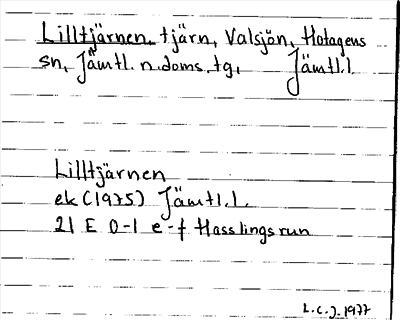 Lilltjärnen tjärn, Valsjön, Hotagens
sn, Jämtl. n. doms. tg, Jämtl.l.
Lilltjärnen
ek (1975) Jämtl.l.
21 E 0-1 e-f Hasslingsrun
L.C.J. 1977